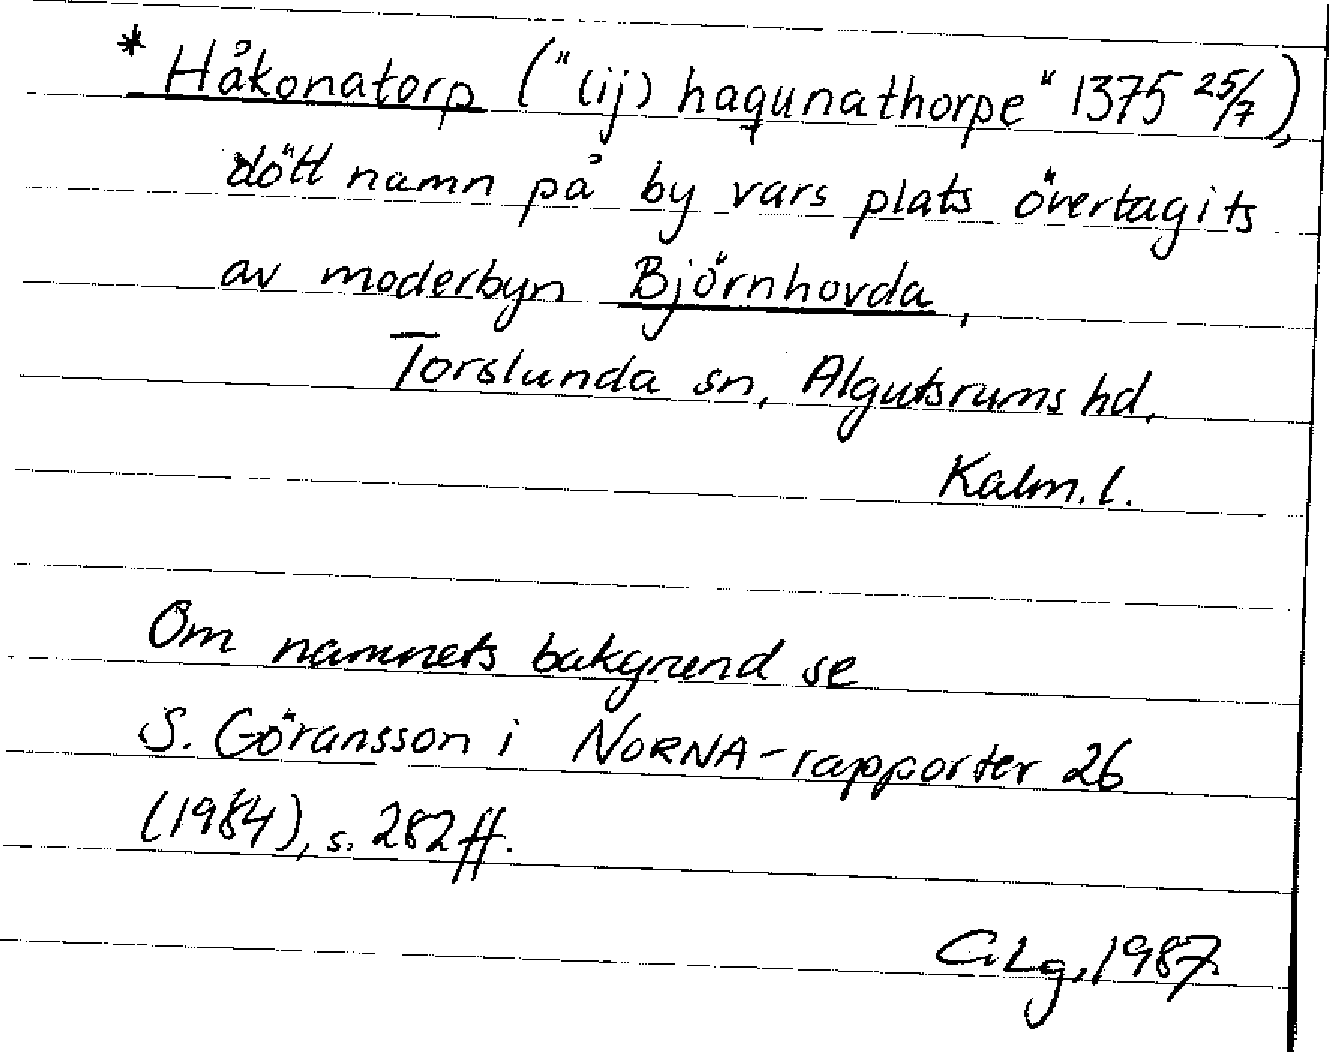 * Håkonatorp ("(ij) haqunathorpe" 1375 25/7),
dött namn på by vars plats övertagits
av moderbyn Björnhovda,
Torslunda sn, Algutsrums hd,
Kalm. l.
Om namnets bakgrund se
S. Göransson i NORNA-rapporter 26
(1984), s. 282 ff.
C. Lg, 1987.